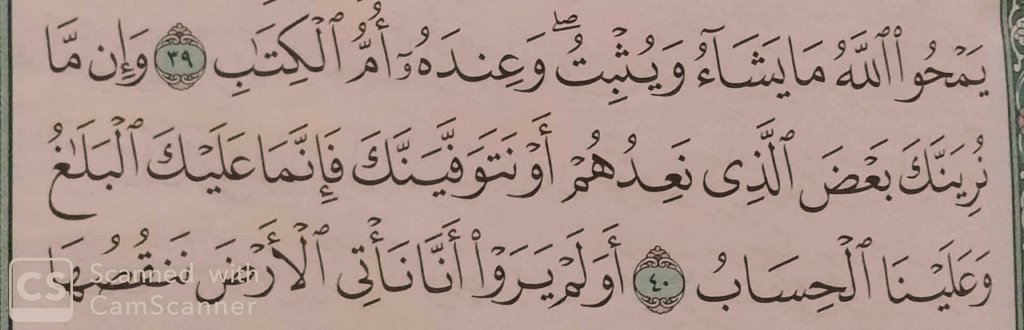 يَمْحُوا۟ ٱللَّهُ مَا يَشَآءُ وَيُثْبِتُ ۖ وَعِندَهُۥٓ أُمُّ ٱلْكِتَٰبِ ٣٩ وَإِن مَّا
نُرِيَنَّكَ بَعْضَ ٱلَّذِى نَعِدُهُمْ أَوْ نَتَوَفَّيَنَّكَ فَإِنَّمَا عَلَيْكَ ٱلْبَلَٰغُ
وَعَلَيْنَا ٱلْحِسَابُ ٤٠ أَوَلَمْ يَرَوْا۟ أَنَّا نَأْتِى ٱلْأَرْضَ نَنقُصُهَا
CS Scanned with
CamScanner